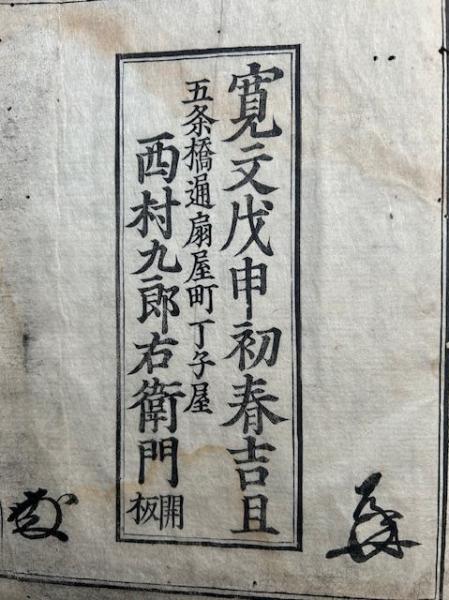 寛文戊申初春吉旦
五条橋通扇屋町丁子屋
西村九郎右衛門
開板